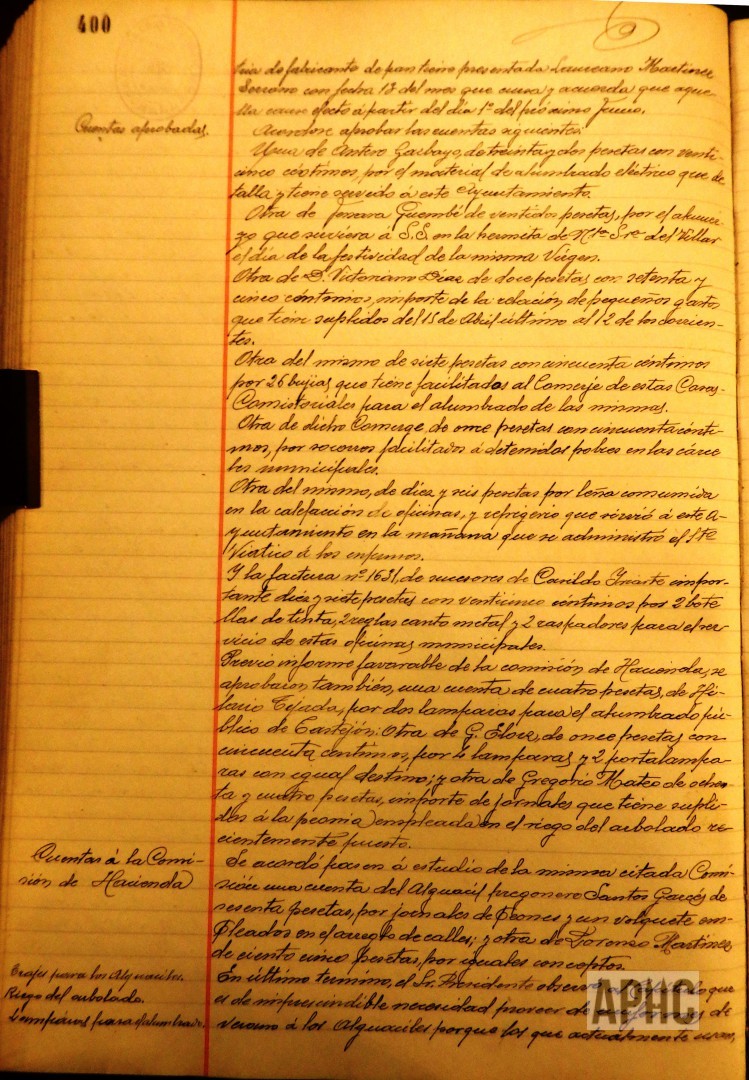 400
tria de fabricante de pan tierno presentada Laureano Martinez
Serrano con fecha 13 del mes que cursa y acuerda que aque-
lla cause efecto á partir del dia 1º del próximo Junio.
Cuentas aprobadas.
Acordose aprobar las cuentas siguientes:
Una de Antero Garbayo, de treinta y dos pesetas con venti-
cinco céntimos, por el material de alumbrado eléctrico que de-
talla y tiene servido á este Ayuntamiento.
Otra de Guembe de ventidos pesetas, por el almuer-
zo que sirviera á S.S. en la hermita de Ntra Sra del Villar
el dia de la festividad de la misma Vírgen.
Otra de D. Victoriano Diaz de doce pesetas con setenta y
cinco céntimos, importe de la relación de pequeños gastos
que tiene suplidos del 15 de Abril último al 12 de los corrien-
tes.
Otra del mismo de siete pesetas con cincuenta céntimos
por 26 bujias que tiene facilitadas al Conserje de estas Casas
Consistoriales para el alumbrado de las mismas.
Otra de dicho Conserge, de once pesetas con cincuenta cénti-
mos, por socorros facilitados á detenidos pobres en las cárce-
les municipales.
Otra del mismo, de diez y seis pesetas por leña consumida
en la calefacción de oficinas, y refrigerio que sirvió á este A-
yuntamiento en la mañana que se administró el Sto
Viatico á los enfermos.
Y la factura nº 1631, de sucesores de Casildo Iriarte impor-
tante diez y siete pesetas con venticinco céntimos por 2 bote-
llas de tinta, 2 reglas canto metal y 2 raspadores para el ser-
vicio de estas oficinas municipales.
Previo informe favorable de la comisión de Hacienda, se
aprobaron también, una cuenta de cuatro pesetas, de Hi-
lario Tejada, por dos lamparas para el alumbrado pú-
blico de Castejón: Otra de G. de once pesetas con
cincuenta centimos, por 4 lamparas y 2 portalampa-
ras con igual destino; y otra de Gregorio Mateo de ochen-
ta y cuatro pesetas, importe de jornales que tiene supli-
dos á la peonia empleada en el riego del arbolado re-
cientemente puesto.
Cuentas á la Comi-
sión de Hacienda
Se acordó pasen á estudio de la misma citada Comi-
sión una cuenta del Alguacil pregonero Santos Garcés de
sesenta pesetas, por jornales de peones y un volquete em-
pleados en el arreglo de calles; y otra de Lorenzo Martinez
de ciento cinco pesetas, por iguales conceptos.
Trajes para los Alguaciles.
Riego del arbolado.
Lamparas para alumbrado.
En último termino, el Sr. Presidente observó al que
es de imprescindible necesidad proveer de uniformes de
verano á los Alguaciles porque los que actualmente usan,
APHC